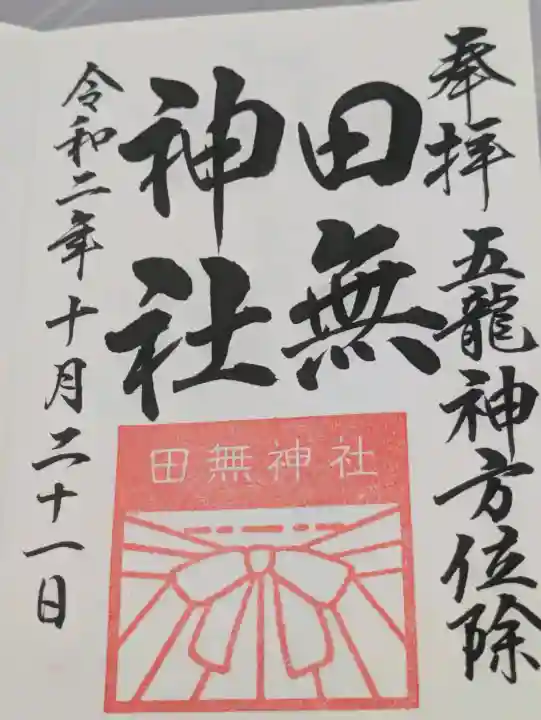 奉拝 五龍神方位除
田無
神社
田無神社
令和二年十月二十一日